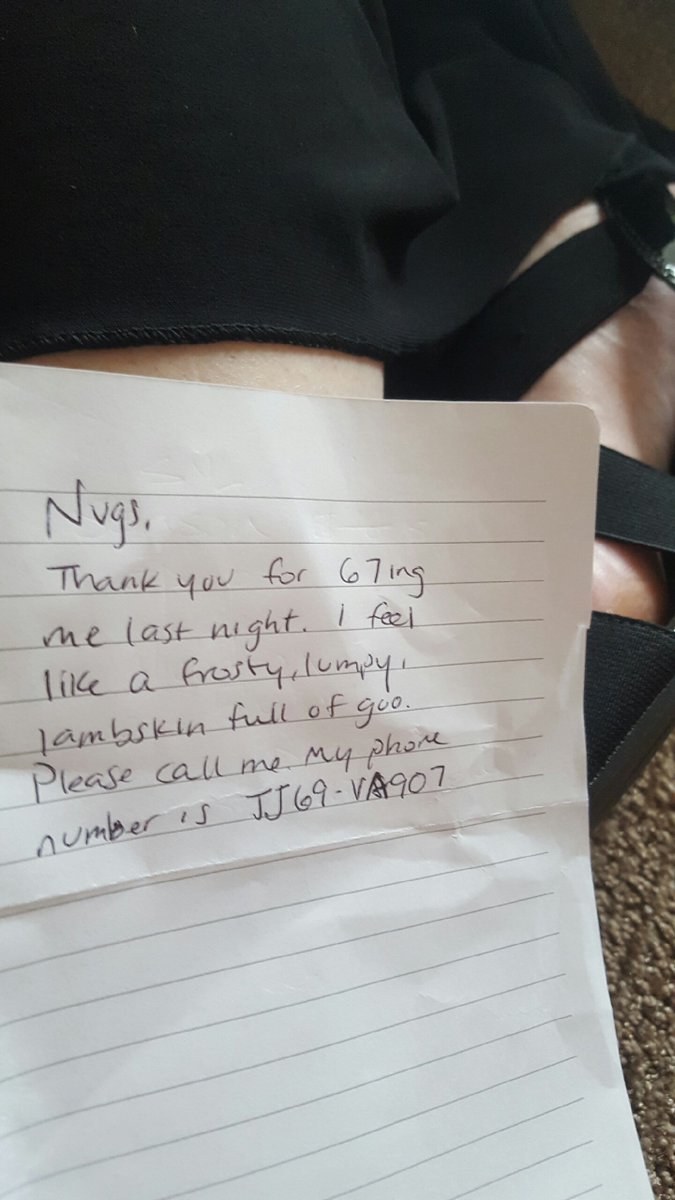 Nugs,
Thank you for 67ing
me last night. I feel
like a frosty, lumpy,
lambskin full of goo.
Please call me. My phone
number is JJ69-VA907